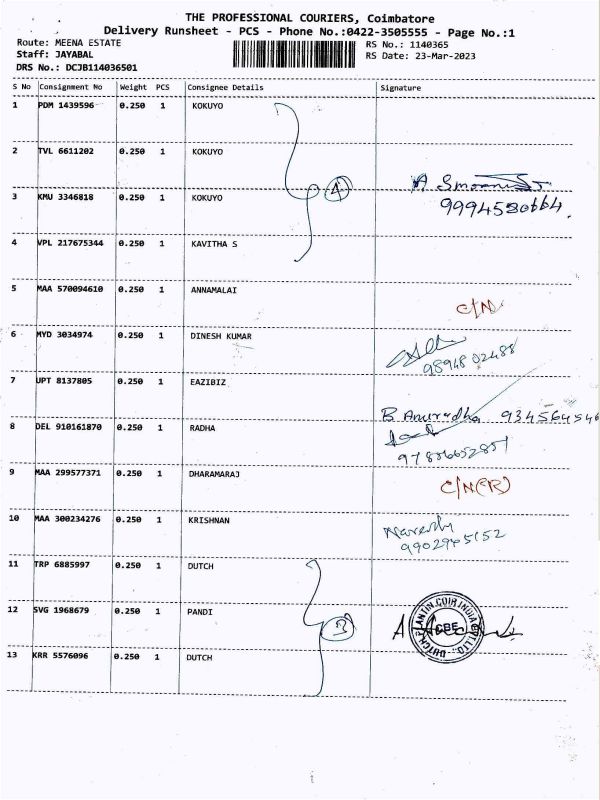 THE PROFESSIONAL COURIERS, Coimbatore
Delivery Runsheet - PCS - Phone No.:0422-3505555 - Page No.:1
Route: MEENA ESTATE
RS No.: 1140365
Staff: JAYABAL
RS Date: 23-Mar-2023
DRS No.: DCJB114036501
S No Consignment No Weight PCS Consignee Details Signature
1 PDM 1439596 0.250 1 KOKUYO
2 TVL 6611202 0.250 1 KOKUYO
4
3 KMU 3346818 0.250 1 KOKUYO
4 VPL 217675344 0.250 1 KAVITHA S
5 MAA 570094610 0.250 1 ANNAMALAI C/N
6 MYD 3034974 0.250 1 DINESH KUMAR
9894802488
7 UPT 8137805 0.250 1 EAZIBIZ
B Anuradha 934564546
8 DEL 910161870 0.250 1 RADHA
9 MAA 299577371 0.250 1 DHARAMARAJ C/N(R)
10 MAA 300234276 0.250 1 KRISHNAN
9902945152
11 TRP 6885997 0.250 1 DUTCH
12 SVG 1968679 0.250 1 PANDI
3 CBE
13 KRR 5576096 0.250 1 DUTCH